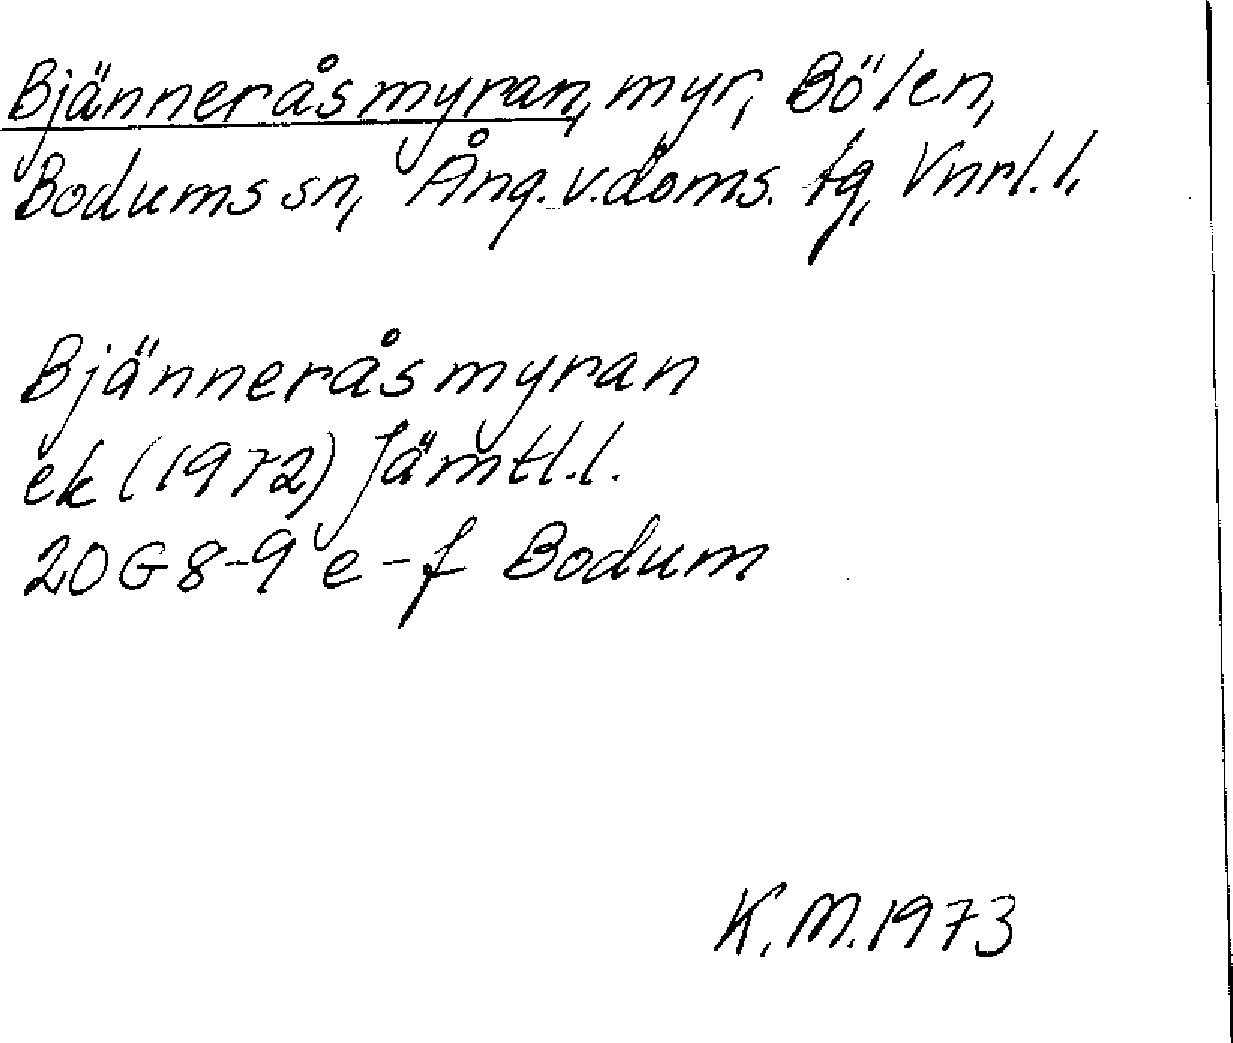 Bjänneråsmyran, myr, Bölen,
Bodums sn, Ång. v. doms. tg, Vnrl. l.
Bjänneråsmyran
ek (1972) Jämtl. l.
20G 8-9 e-f Bodum
K. M. 1973